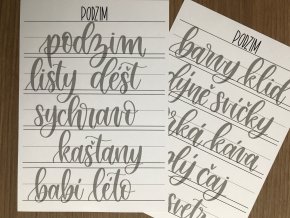 PODZIM
podzim
listy déšť
sychravo
kaštany
babí léto
PODZIM
barvy klid
dýně svíčky
káva
čaj